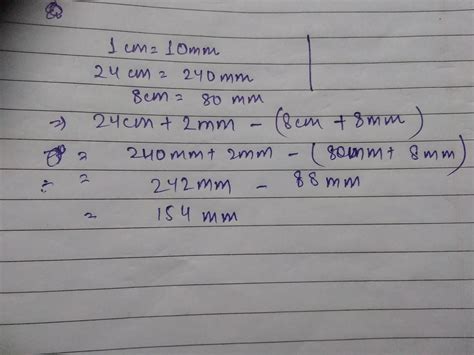 1 cm = 10mm
24 cm = 240 mm
8cm = 80 mm
⇒ 24cm + 2mm - (8cm + 8mm)
= 240mm + 2mm - (80mm + 8mm)
= 242mm - 88 mm
= 154 mm